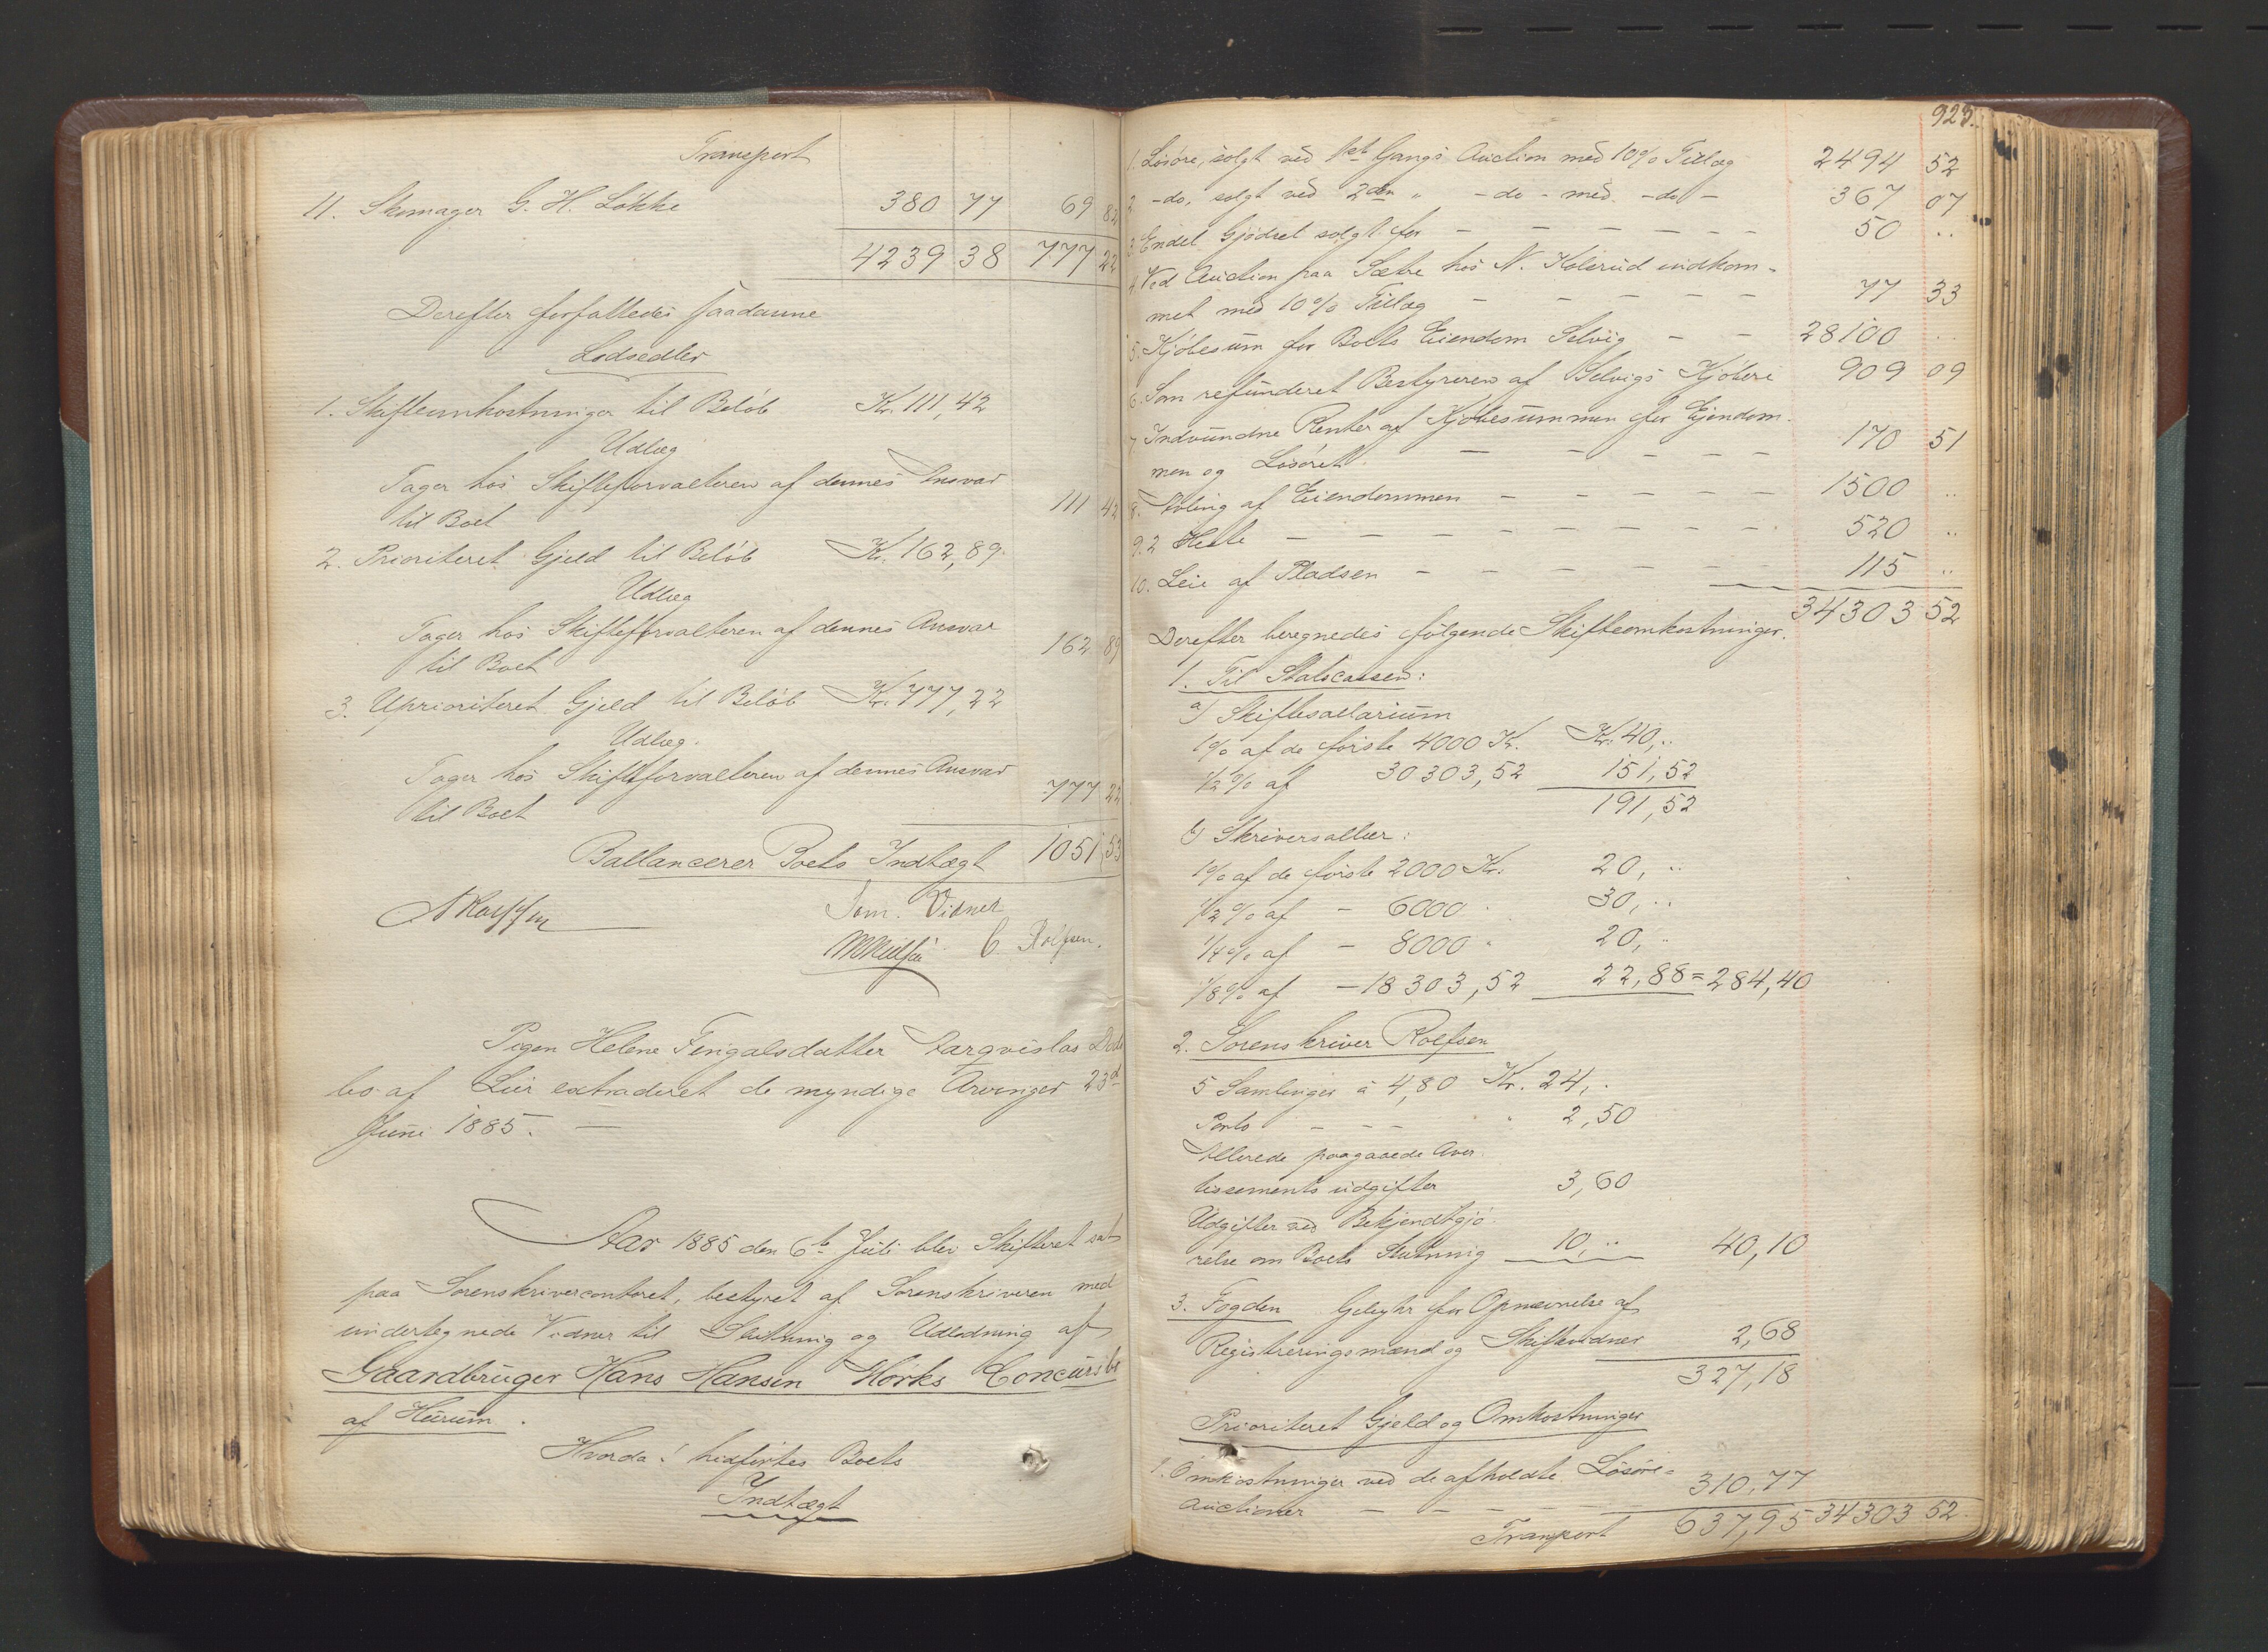 Transport
11. Skomager G. H. Løkke 380 77 69 82
4239 38 777 22
Derefter forfattedes saadanne
Lodsedler
1. Skifteomkostninger til Beløb Kr. 111,42
Udlæg
Tager hos Skifteforvalteren af dennes Ansvar
til Boet 111 42
2. Prioriteret Gjeld til Beløb Kr. 162,89.
Udlæg
Tager hos Skifteforvalteren af dennes Ansvar
til Boet 162 89
3. Uprioriteret Gjeld til Beløb Kr. 777,22
Udlæg.
Tager hos Skifteforvalteren af dennes Ansvar
til Boet 777 22
Ballancerer Boets Indtægt 1051,53
Som Vidner
C. Rolfsen.
Pigen Helene Fingalsdatter Døds
bo af Lier extraderet de myndige Arvinger 23d
Juni 1885. —
Aar 1885 den 6te Juli blev Skifteret sat
paa Sorenskrivercontoret, bestyret af Sorenskriveren med
undertegnede Vidner til Slutning og Udlodning af
Gaardbruger Hans Hansen Mørks Concursbo
af Hurum.
Hvorda: hidførtes Boets
Indtægt
923.
1. Løsøre, solgt ved 1ste Gangs Auction med 10% Tillæg 2494 52
2. -do, solgt ved 2den " -do- med -do- 367 07
3. Endel Gjødsel solgt for — — — — — — 50 ..
4. Ved Auction paa Sætre hos N. Kolsrud indkom-
met med 10% Tillæg — — — — — 77 33
5. Kjøbesum for Boets Eiendom Selvig — — 28100 ..
6. Som refunderet Bestyreren af Selvigs Kjøbere 909 09
7. Indvundne Renter af Kjøbesummen for Ejendom-
men og Løsøret — — — — — 170 51
8. af Eiendommen — — — — — 1500 ..
9. 2 Heste — — — — — — — 520 ..
10. Leie af Pladsen — — — — — 115 ..
34303 52
Derefter beregnedes følgende Skifteomkostninger.
1. Til Statscassen:
a) Skiftesallarium
1% af de første 4000 Kr. Kr. 40,..
1/2% af 30303,52 151,52
191,52
b) Skriversallær:
1% af de første 2000 Kr. 20,..
1/2% af — 6000 . 30,..
1/4% af — 8000 " 20,..
1/8% af — 18303,52 22,88 = 284,40
2. Sorenskriver Rolfsen
5 Samlinger à 4,80 Kr. 24,.
Porto — — — " 2,50
Allerede paagaaede Aver-
tissements udgifter 3,60
Udgifter ved Bekjendtgjø-
relse om Boets Slutning 10,.. 40,10
3. Fogden Gebyhr for Opnævnelse af
Registreringsmænd og Skiftevidner 2,68
327,18
Prioriteret Gjeld og Omkostninger
1. Omkostninger ved de afholdte Løsøre-
Auctioner — — — — 310,77
Transport 637,95 34303 52.